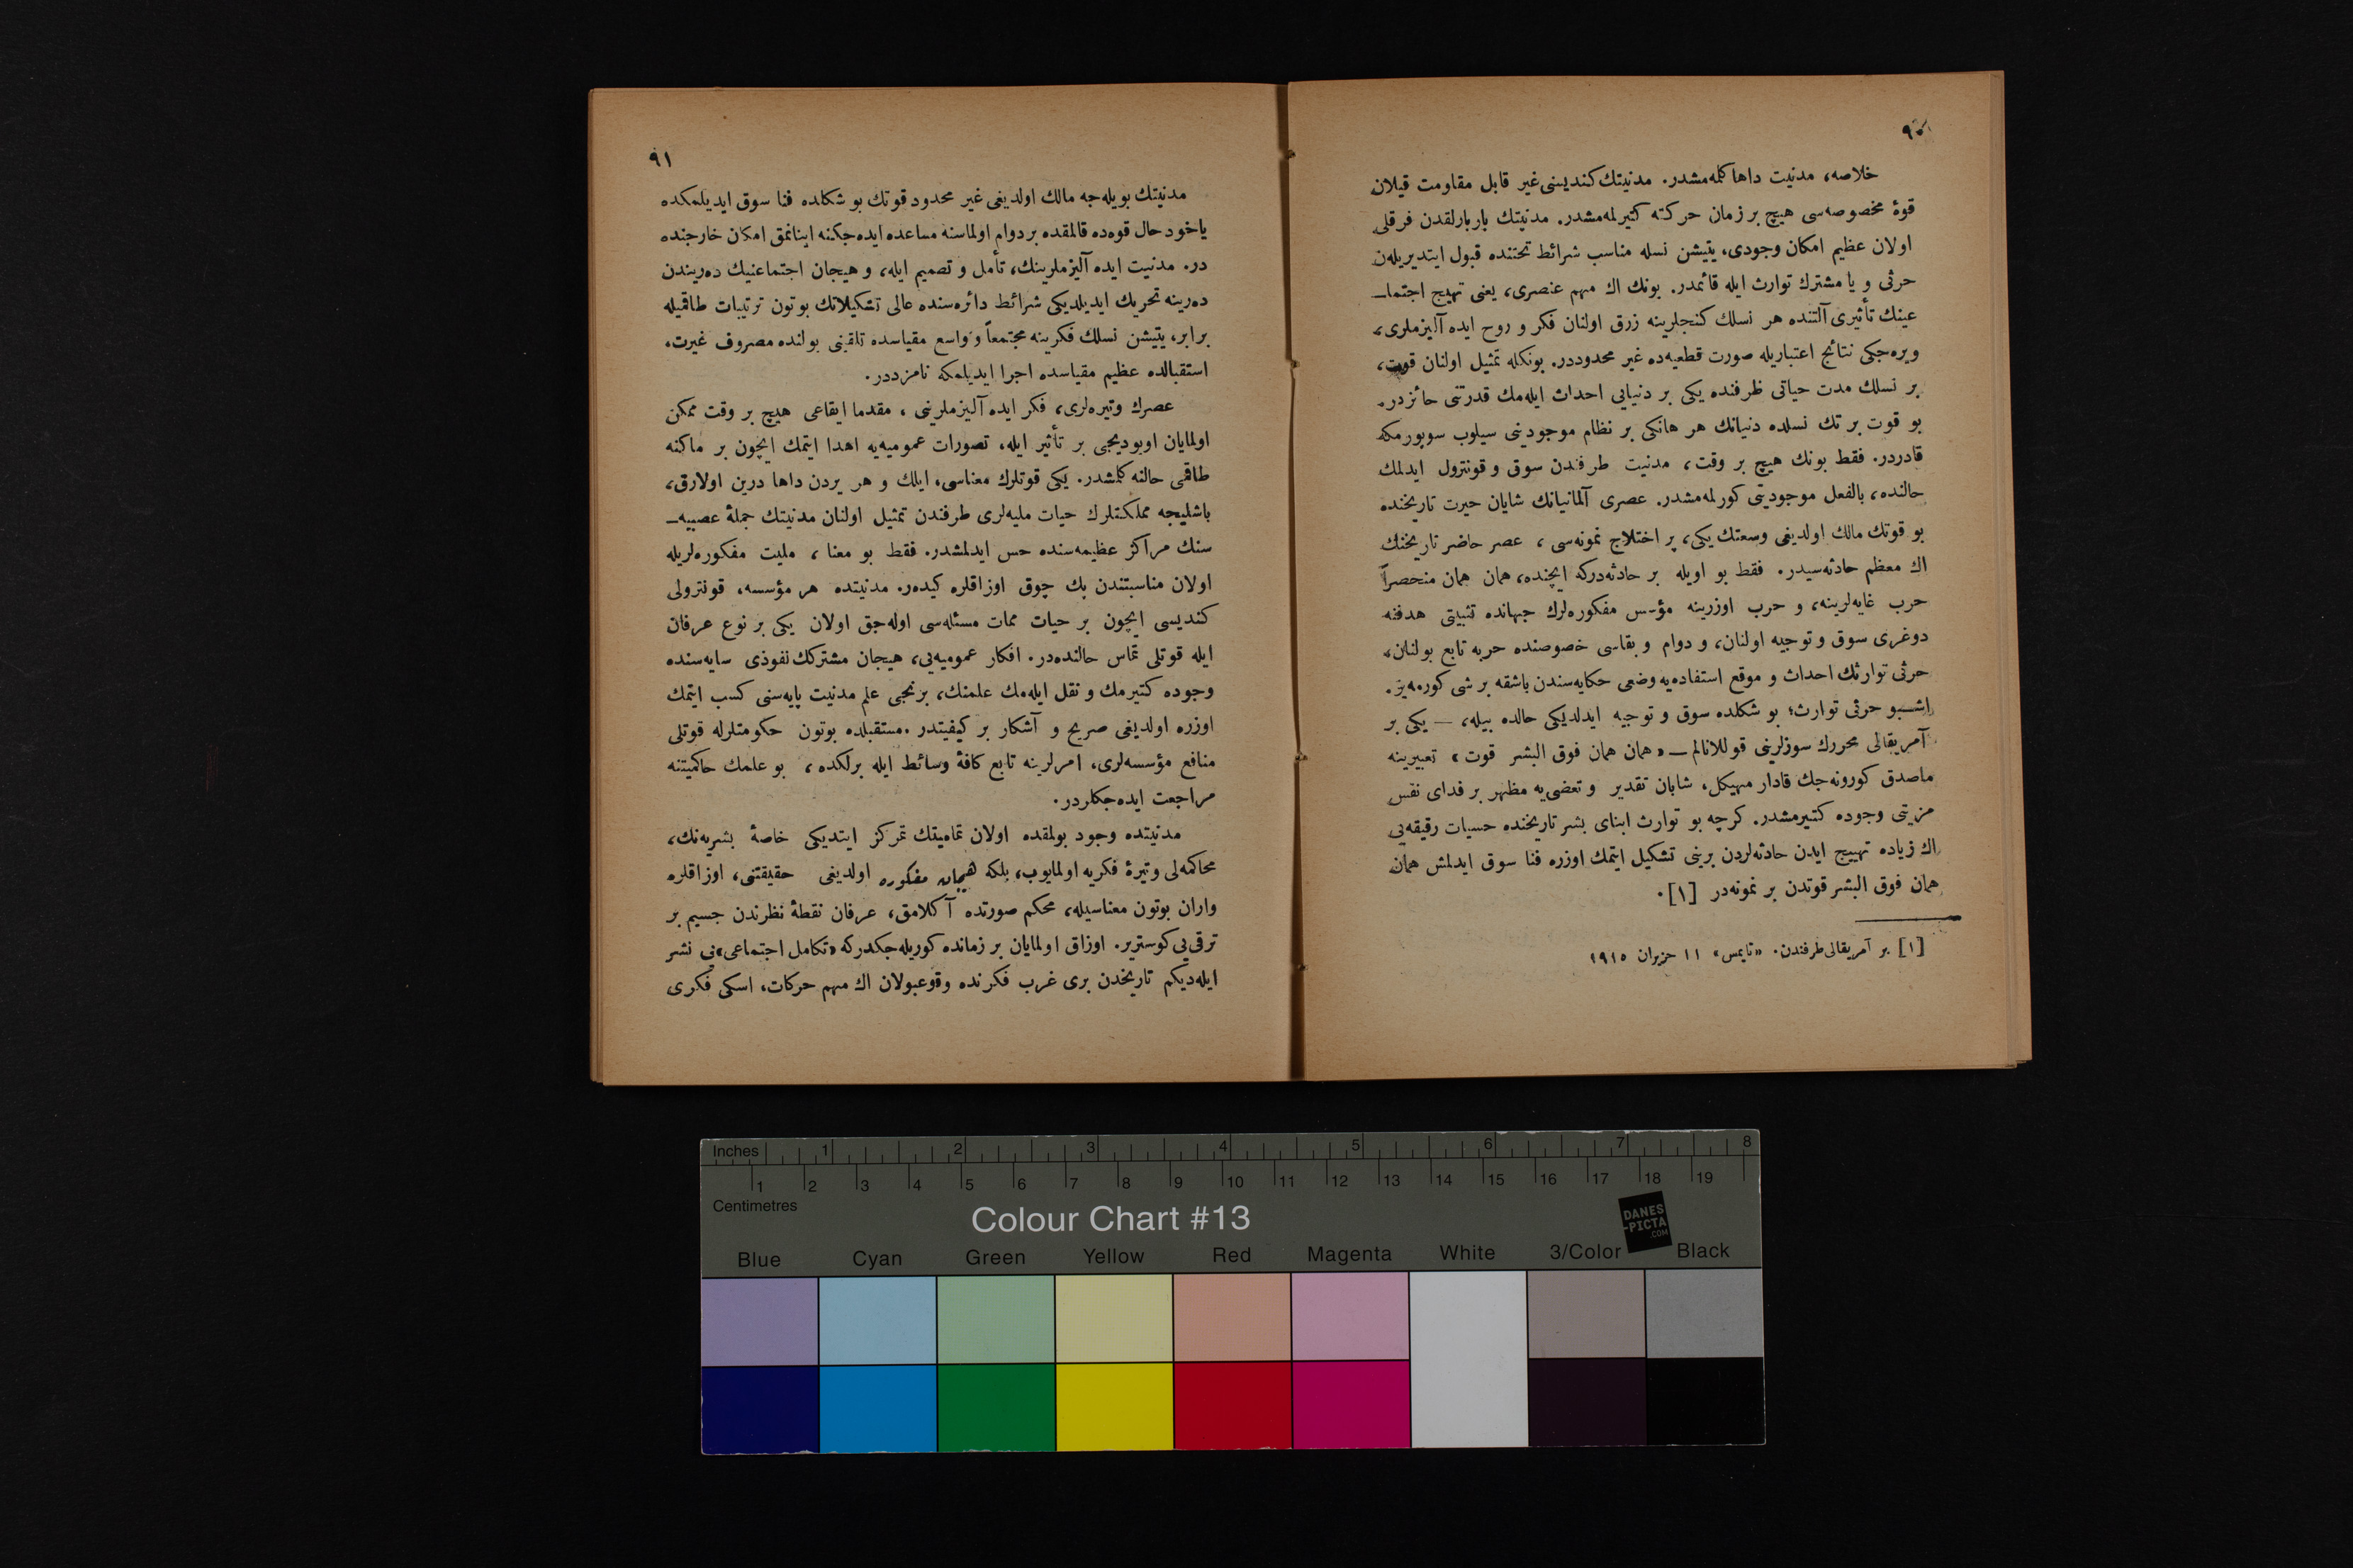 ٩٠
خلاصه، مدنيت داها كلمه‌مشدر. مدنيتك كنديسنى غير قابل مقاومت قيلان
قوۀ مخصوصه‌سى هيچ بر زمان حركته كتيرلمه‌مشدر. مدنيتك باربارلقدن فرقلى
اولان عظيم امكان وجودى، يتيشن نسله مناسب شرائط تحتنده قبول ايتديريله‌ن
حرثى و يا مشترك توارث ايله قائمدر. بونك اك مهم عنصرى، يعنى تهيج اجتما‌ـ
عينك تأثيرى آلتنده هر نسلك كنجلرينه زرق اولنان فكر و روح ايده آليزملرى،
ويره‌جكى نتائج اعتباريله صورت قطعيه‌ده غير محدوددر. بونكله تمثيل اولنان قوت،
بر نسلك مدت حياتى ظرفنده يكى بر دنيايى احداث ايله‌مك قدرتنى حائزدر.
بو قوت بر تك نسلده دنيانك هر هانكى بر نظام موجودينى سيلوب سوپورمكه
قادردر. فقط بونك هيچ بر وقت، مدنيت طرفندن سوق و قونترول ايدلمك
حالنده، بالفعل موجوديتى كورلمه‌مشدر. عصرى آلمانيانك شايان حيرت تاريخنده
بو قوتك مالك اولديغى وسعتك يكى، پر اختلاج نمونه‌سى، عصر حاضر تاريخنك
اك معظم حادثه‌سيدر. فقط بو اويله بر حادثه‌دركه ايچنده، همان همان منحصراً
حرب غايه‌لرينه، و حرب اوزرينه مؤسس مفكوره‌لرك جهانده تثبيتى هدفنه
دوغرى سوق و توجيه اولنان، و دوام و بقاسى خصوصنده حربه تابع بولنان،
حرثى توارثك احداث و موقع استفاده‌يه وضعى حكايه‌سندن باشقه بر شى كورمه‌يز.
اشبو حرثى توارث؛ بو شكلده سوق و توجيه ايدلديكى حالده بيله، — يكى بر
آمريقالى محررك سوزلرينى قوللانالم — «همان همان فوق البشر قوت» تعبيرينه
ماصدق كورونه‌جك قادار مهيكل، شايان تقدير و تعضى‌يه مظهر بر فداى نفس
مزيتى وجوده كتيرمشدر. كرچه بو توارث ابناى بشر تاريخنده حسيات رقيقه‌يى
اك زياده تهييج ايدن حادثه‌لردن برينى تشكيل ايتمك اوزره فنا سوق ايدلمش همان
همان فوق البشر قوتدن بر نمونه‌در [١].
[١] بر آمريقالى طرفندن. «تايمس» ١١ حزيران ١٩١٥
٩١
مدنيتك بويله‌جه مالك اولديغى غير محدود قوتك بو شكلده فنا سوق ايديلمكده
ياخود حال قوه‌ده قالمقده بر دوام اولماسنه مساعده ايده‌جكنه اينانمق امكان خارجنده
در. مدنيت ايده آليزملرينك، تأمل و تصميم ايله، و هيجان اجتماعنيك ده‌ريندن
ده‌رينه تحريك ايديلديكى شرائط دائره‌سنده عالى تشكيلاتك بوتون ترتيبات طاقميله
برابر، يتيشن نسلك فكرينه مجتمعاً و واسع مقياسده تلقينى يولنده مصروف غيرت،
استقبالده عظيم مقياسده اجرا ايديلمكه نامزددر.
عصرك وتيره‌لرى، فكر ايده آليزملرينى، مقدما ايقاعى هيچ بر وقت ممكن
اولمايان اويوديجى بر تأثير ايله، تصورات عموميه‌يه اهدا ايتمك ايچون بر ماكنه
طاقمى حالنه كلمشدر. يكى قوتلرك معناسى، ايلك و هر يردن داها درين اولارق،
باشليجه مملكتلرك حيات مليه‌لرى طرفندن تمثيل اولنان مدنيتك جملۀ عصبيه‌ـ
سنك مراكز عظيمه‌سنده حس ايدلمشدر. فقط بو معنا، مليت مفكوره‌لريله
اولان مناسبتندن پك چوق اوزاقلره كيده‌ر. مدنيتده هر مؤسسه، قونترولى
كنديسى ايچون بر حيات ممات مسئله‌سى اوله‌جق اولان يكى بر نوع عرفان
ايله قوتلى تماس حالنده‌در. افكار عموميه‌يى، هيجان مشتركك نفوذى سايه‌سنده
وجوده كتيرمك و نقل ايله‌مك علمنك، برنجى علم مدنيت پايه‌سنى كسب ايتمك
اوزره اولديغى صريح و آشكار بر كيفيتدر. مستقبلده بوتون حكومتلرله قوتلى
منافع مؤسسه‌لرى، امرلرينه تابع كافۀ وسائط ايله برلكده، بو علمك حاكميتنه
مراجعت ايده‌جكلردر.
مدنيتده وجود بولمقده اولان تماميتك تمركز ايتديكى خاصۀ بشريه‌نك،
محاكمه‌لى وتيرۀ فكريه اولمايوب، بلكه هيجان مفكوره اولديغى حقيقتنى، اوزاقلره
واران بوتون معناسيله، محكم صورتده آكلامق، عرفان نقطۀ نظرندن جسيم بر
ترقى‌يى كوسترير. اوزاق اولمايان بر زمانده كوريله‌جكدركه «تكامل اجتماعى»يى نشر
ايله‌ديكم تاريخدن برى غرب فكرنده وقوعبولان اك مهم حركات، اسكى فكرى
Inches 1 2 3 4 5 6 7 8
1 2 3 4 5 6 7 8 9 10 11 12 13 14 15 16 17 18 19
Centimetres
Colour Chart #13
DANES
-PICTA
.COM
Blue Cyan Green Yellow Red Magenta White 3/Color Black